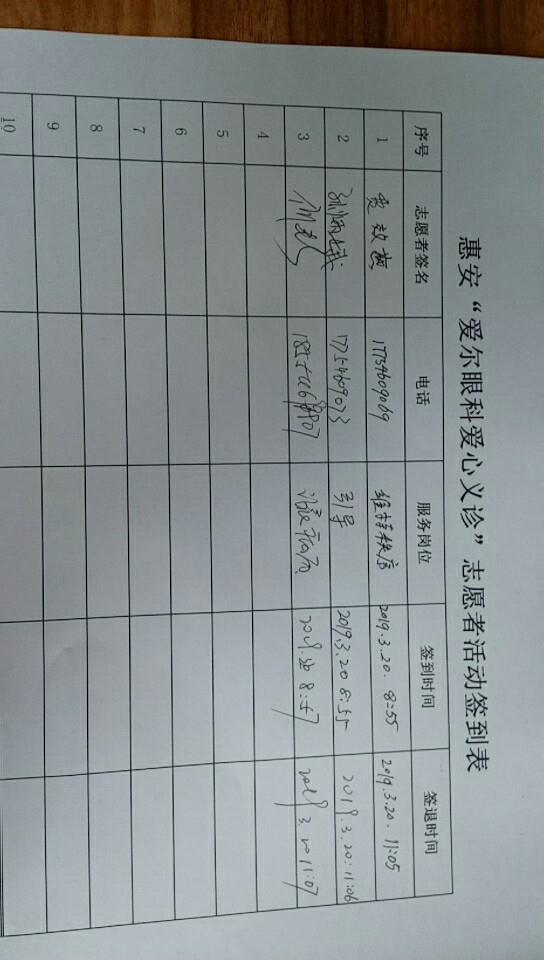 惠安“爱尔眼科爱心义诊”志愿者活动签到表
序号 志愿者签名 电话 服务岗位 签到时间 签退时间
1 贾效振 17754609069 维持秩序 2019.3.20. 8:55 2019.3.20. 11:05
2 17754609073 引导 2019.3.20 8:55 2019.3.20. 11:06
3 8:57 11:07
4
5
6
7
8
9
10